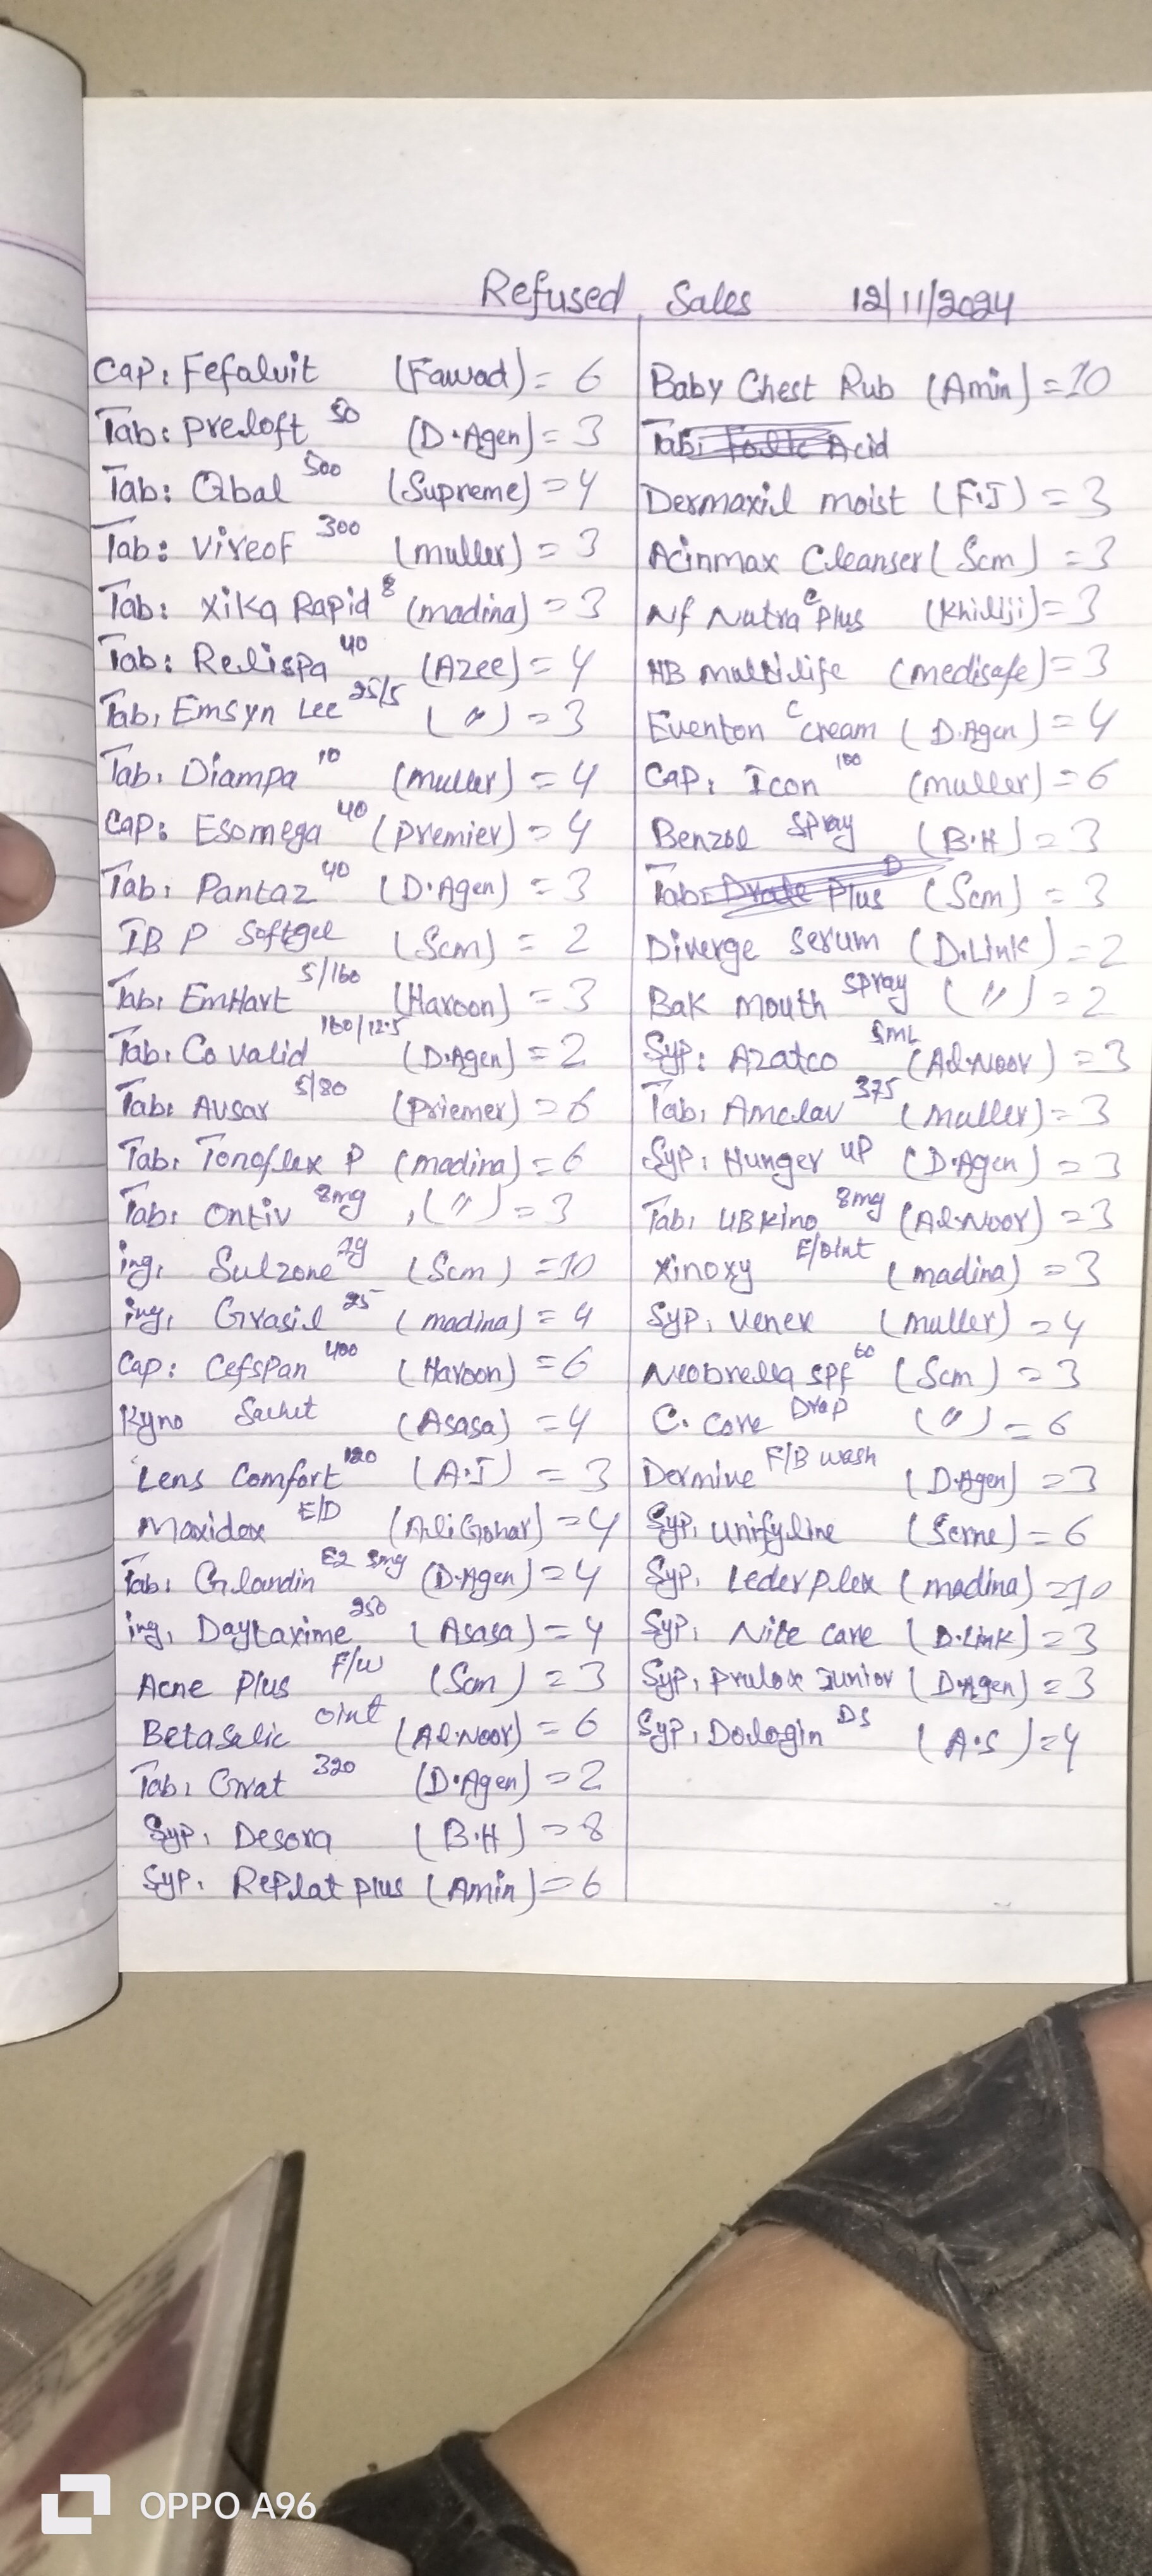 Refused Sales 12/11/2024
Cap: Fefalvit (Fawad) = 6
Tab: Preloft 50 (D.Agen) = 3
Tab: Qbal 500 (Supreme) = 4
Tab: Vireof 300 (muller) = 3
Tab: Xika Rapid 8 (madina) = 3
Tab: Relispa 40 (Azee) = 4
Tab: Emsyn Lee 25/5 (") = 3
Tab: Diampa 10 (muller) = 4
Cap: Esomega 40 (Premier) = 4
Tab: Pantaz 40 (D.Agen) = 3
IB P Softgel (Scm) = 2
Tab: EmHart 5/160 (Haroon) = 3
Tab: Co valid 160/12.5 (D.Agen) = 2
Tab: Avsar 5/80 (Priemer) = 6
Tab: Tonoflex P (madina) = 6
Tab: Ontiv 8mg (") = 3
ing: Sulzone 2g (Scm) = 10
ing: Grasil 25 (madina) = 4
Cap: Cefspan 400 (Haroon) = 6
Kyno Sachet (Asasa) = 4
Lens Comfort 120 (A.I) = 3
Maxidex E/D (Ali Gohar) = 4
Tab: Glandin E2 3mg (D.Agen) = 4
ing: Daytaxime 250 (Asasa) = 4
Acne Plus F/W (Scm) = 3
Betasalic oint (Al.Noor) = 6
Tab: Gvat 320 (D.Agen) = 2
Syp: Desora (B.H) = 8
Syp: Replat plus (Amin) = 6
Baby Chest Rub (Amin) = 10
Tab: Folic Acid
Dermaxil moist (F.J) = 3
Acinmax Cleanser (Scm) = 3
Nf Nutra C Plus (Khiliji) = 3
HB multilife (medisafe) = 3
Eventon C cream (D.Agen) = 4
Cap: Icon 100 (muller) = 6
Benzol Spray (B.H) = 3
Tab: Plus D (Scm) = 3
Diverge serum (D.Link) = 2
Bak mouth spray (") = 2
Syp: Azatco 5mL (Al.Noor) = 3
Tab: Amclav 375 (muller) = 3
Syp: Hunger up (D.Agen) = 3
Tab: UBKino 8mg (Al.Noor) = 3
Xinoxy E/oint (madina) = 3
Syp: venex (muller) = 4
Neobrella spf 60 (Scm) = 3
C. Core Drop (") = 6
Dermive F/B wash (D.Agen) = 3
Syp: Unifyline (Seme) = 6
Syp: Lederplex (madina) = 10
Syp: Nite care (D.Link) = 3
Syp: Prulax Junior (D.Agen) = 3
Syp: Dologin DS (A.S) = 4
OPPO A96